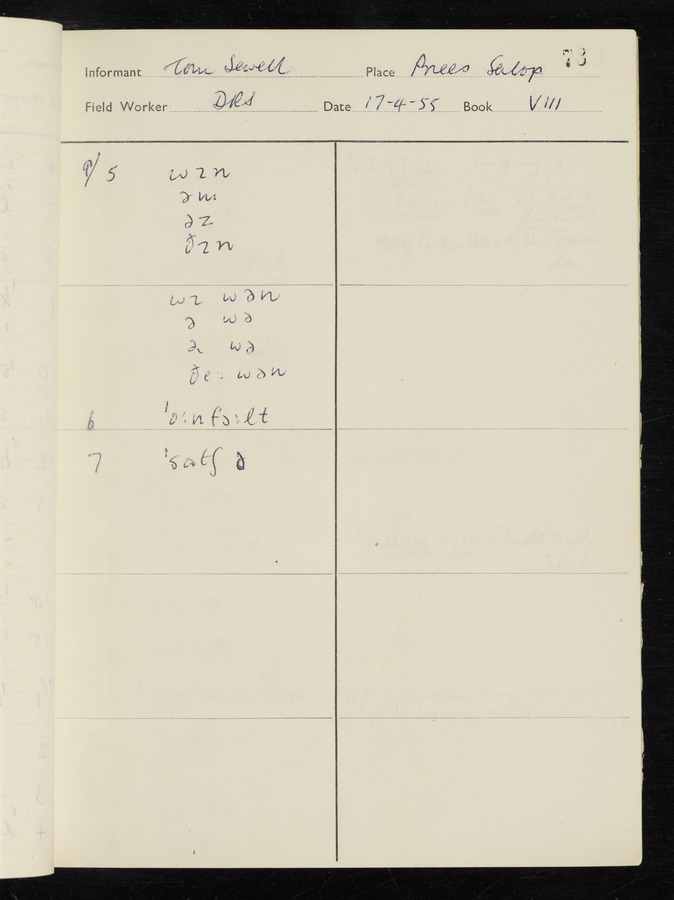 Informant Tom Sewell Place Prees Salop 73
Field Worker DRS Date 17-4-55 Book VIII
9/5 wɪn
əm
əz
ðɪn
wɪ wən
ə wə
wə
ðe: wən
6
7 ˈsatʃ ə